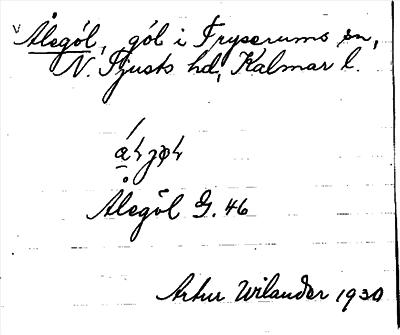 v Ålegöl, göl i Tryserums sn,
N. Tjusts hd, Kalmar l.
Ålegöl G. 46
Artur Wilander 1930